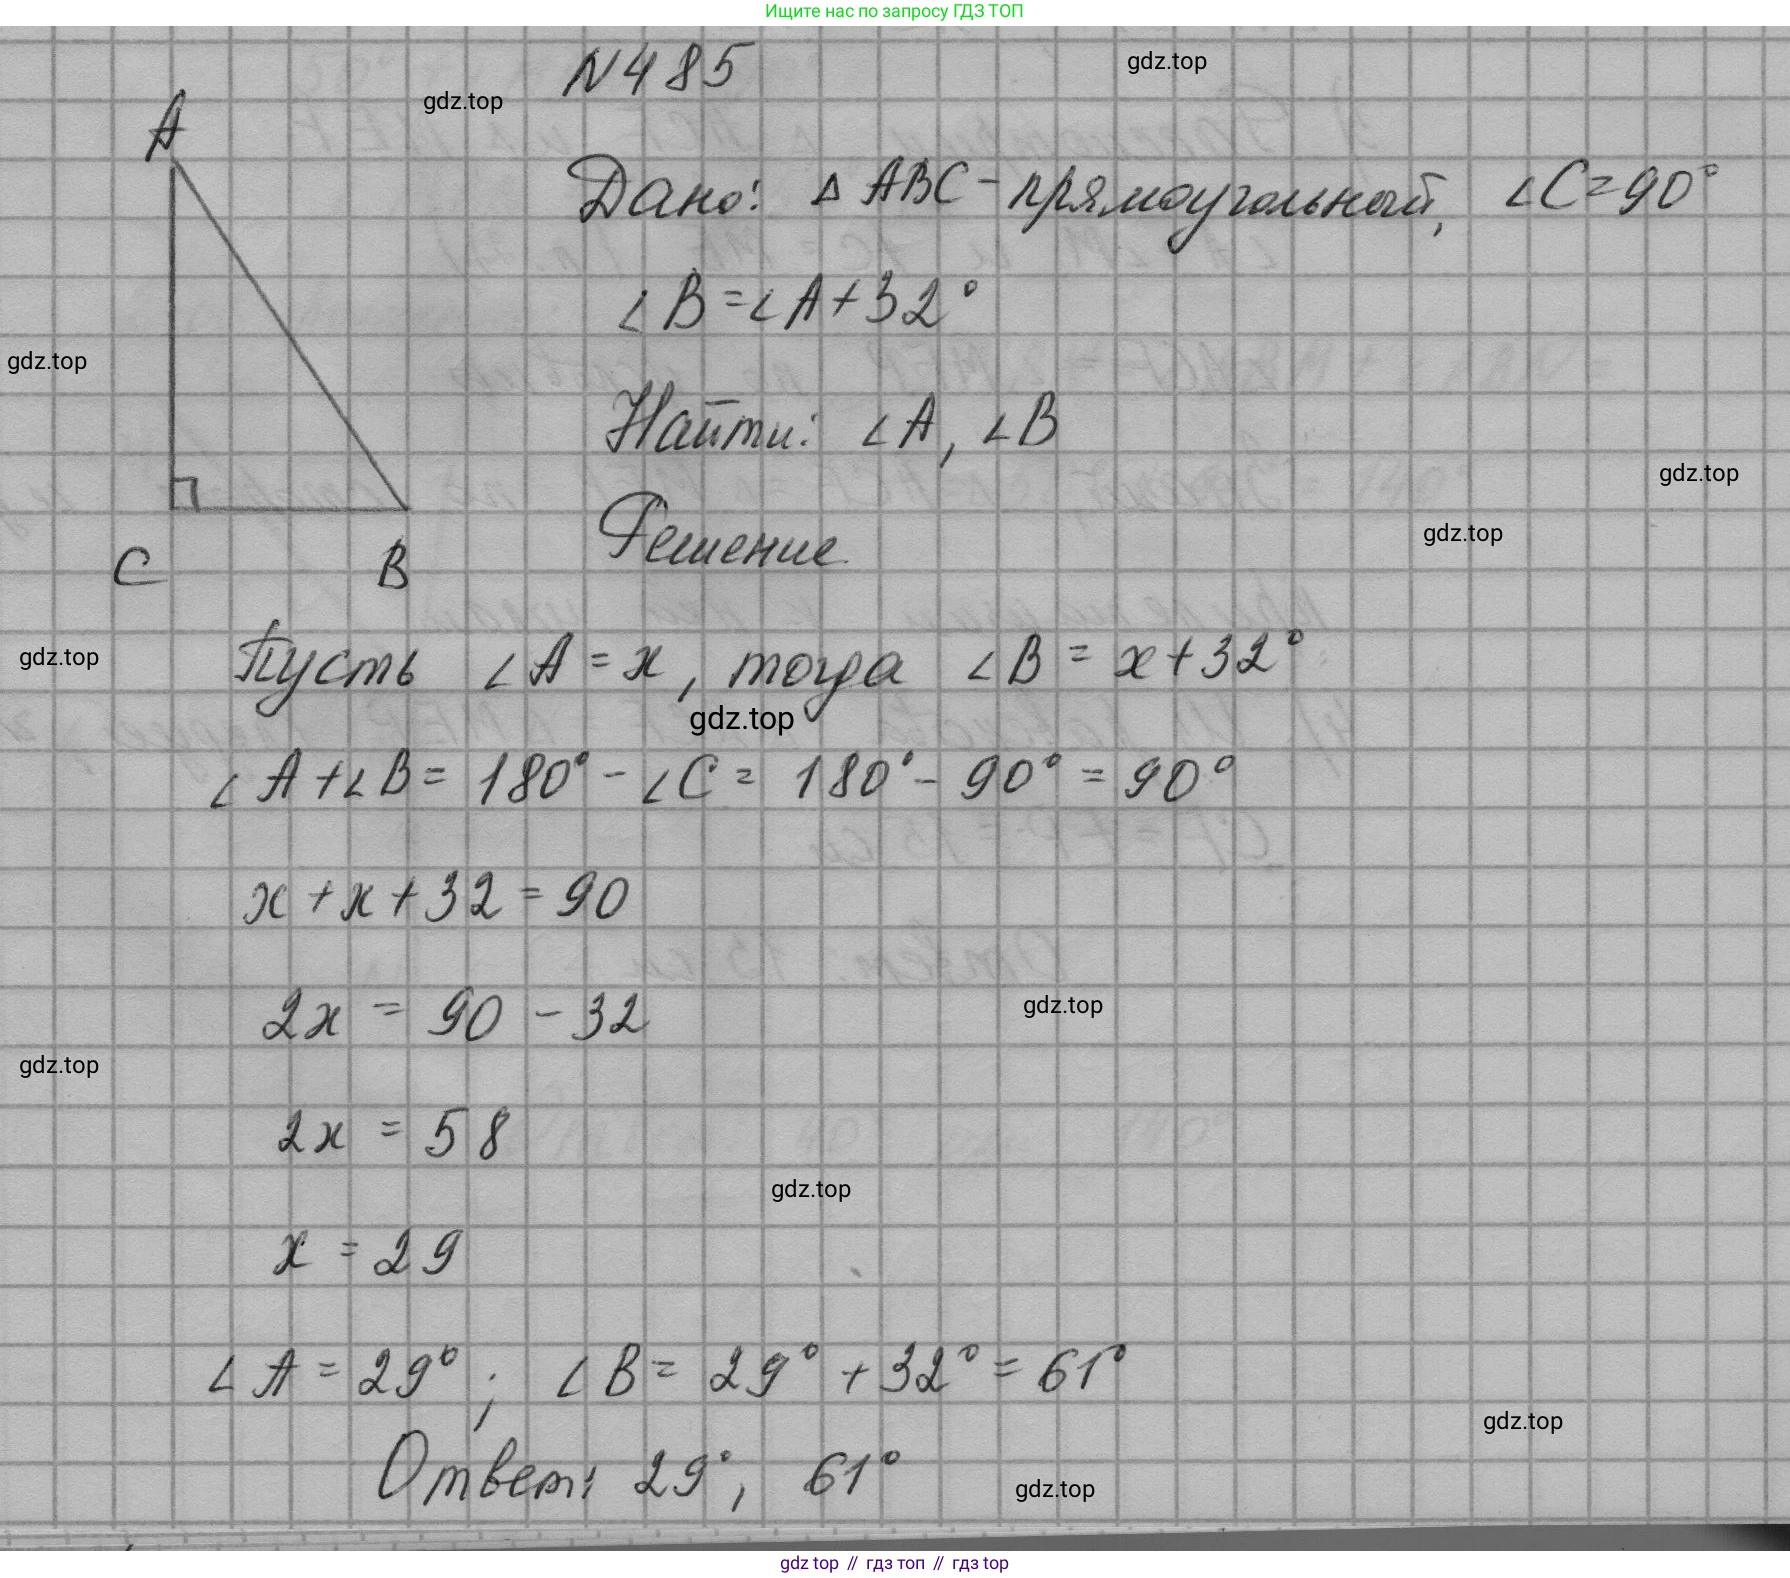 Ищите нас по запросу ГДЗ ТОП
N485
gdz.top
gdz.top
A
Дано: Δ ABC - прямоугольный, ∠C = 90°
∠B = ∠A + 32°
gdz.top
Найти: ∠A, ∠B
gdz.top
Решение
gdz.top
C B
Пусть ∠A = x, тогда ∠B = x + 32°
gdz.top
gdz.top
∠A + ∠B = 180° - ∠C = 180° - 90° = 90°
x + x + 32 = 90
2x = 90 - 32
gdz.top
gdz.top
2x = 58
gdz.top
x = 29
∠A = 29°; ∠B = 29° + 32° = 61°
gdz.top
Ответ: 29°, 61°
gdz.top
gdz top // гдз топ // гдз top